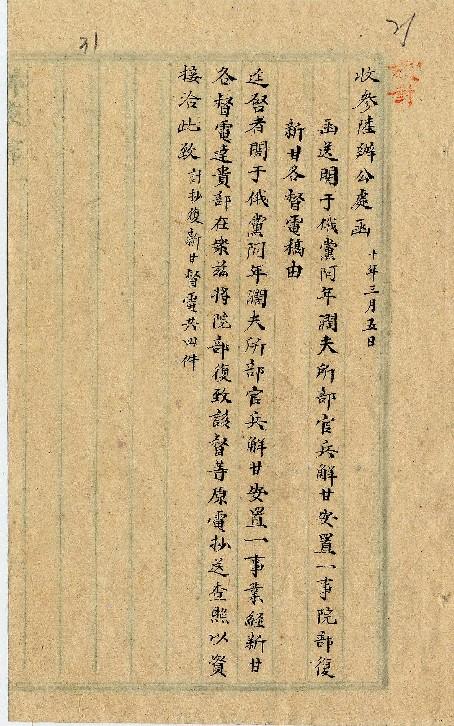 21
31
收參陸辦公處函 十年三月五日
函送關于俄黨阿年濶夫所部官兵解甘安置一事院部復
新甘各督電稿由
逕啓者關于俄黨阿年濶夫所部官兵解甘安置一事業經新甘
各督電達貴部在案茲將院部復致該督等原電抄送查照以資
接洽此致 計抄復新甘督電共四件